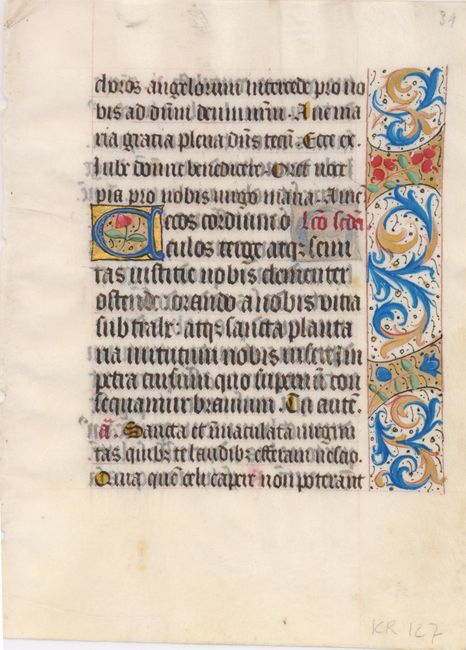 31
choros angelorum intercede pro no
bis ad dm̄ deum nr̄m. Aue ma
ria gracia plena dn̄s tecū. Ecce ex.
Iube domne benedicere. Oret uoce
pia pro nobis uirgo maria. Amē
Cecos cordium o lc̄o scd̄a.
culos terge atq; semi
tas iusticie nobis clementer
ostende: orando a nobis uitia
subtrahe: atq; sancta planta
ria uirtutum nobis
petra cuiſum quo supernū con
sequamur brauium. Tu autē.
a. Sancta et īmaculata uirgini
tas quib; te laudib; efferam nescio.
Quia quē celi capere non poterant
KR 127